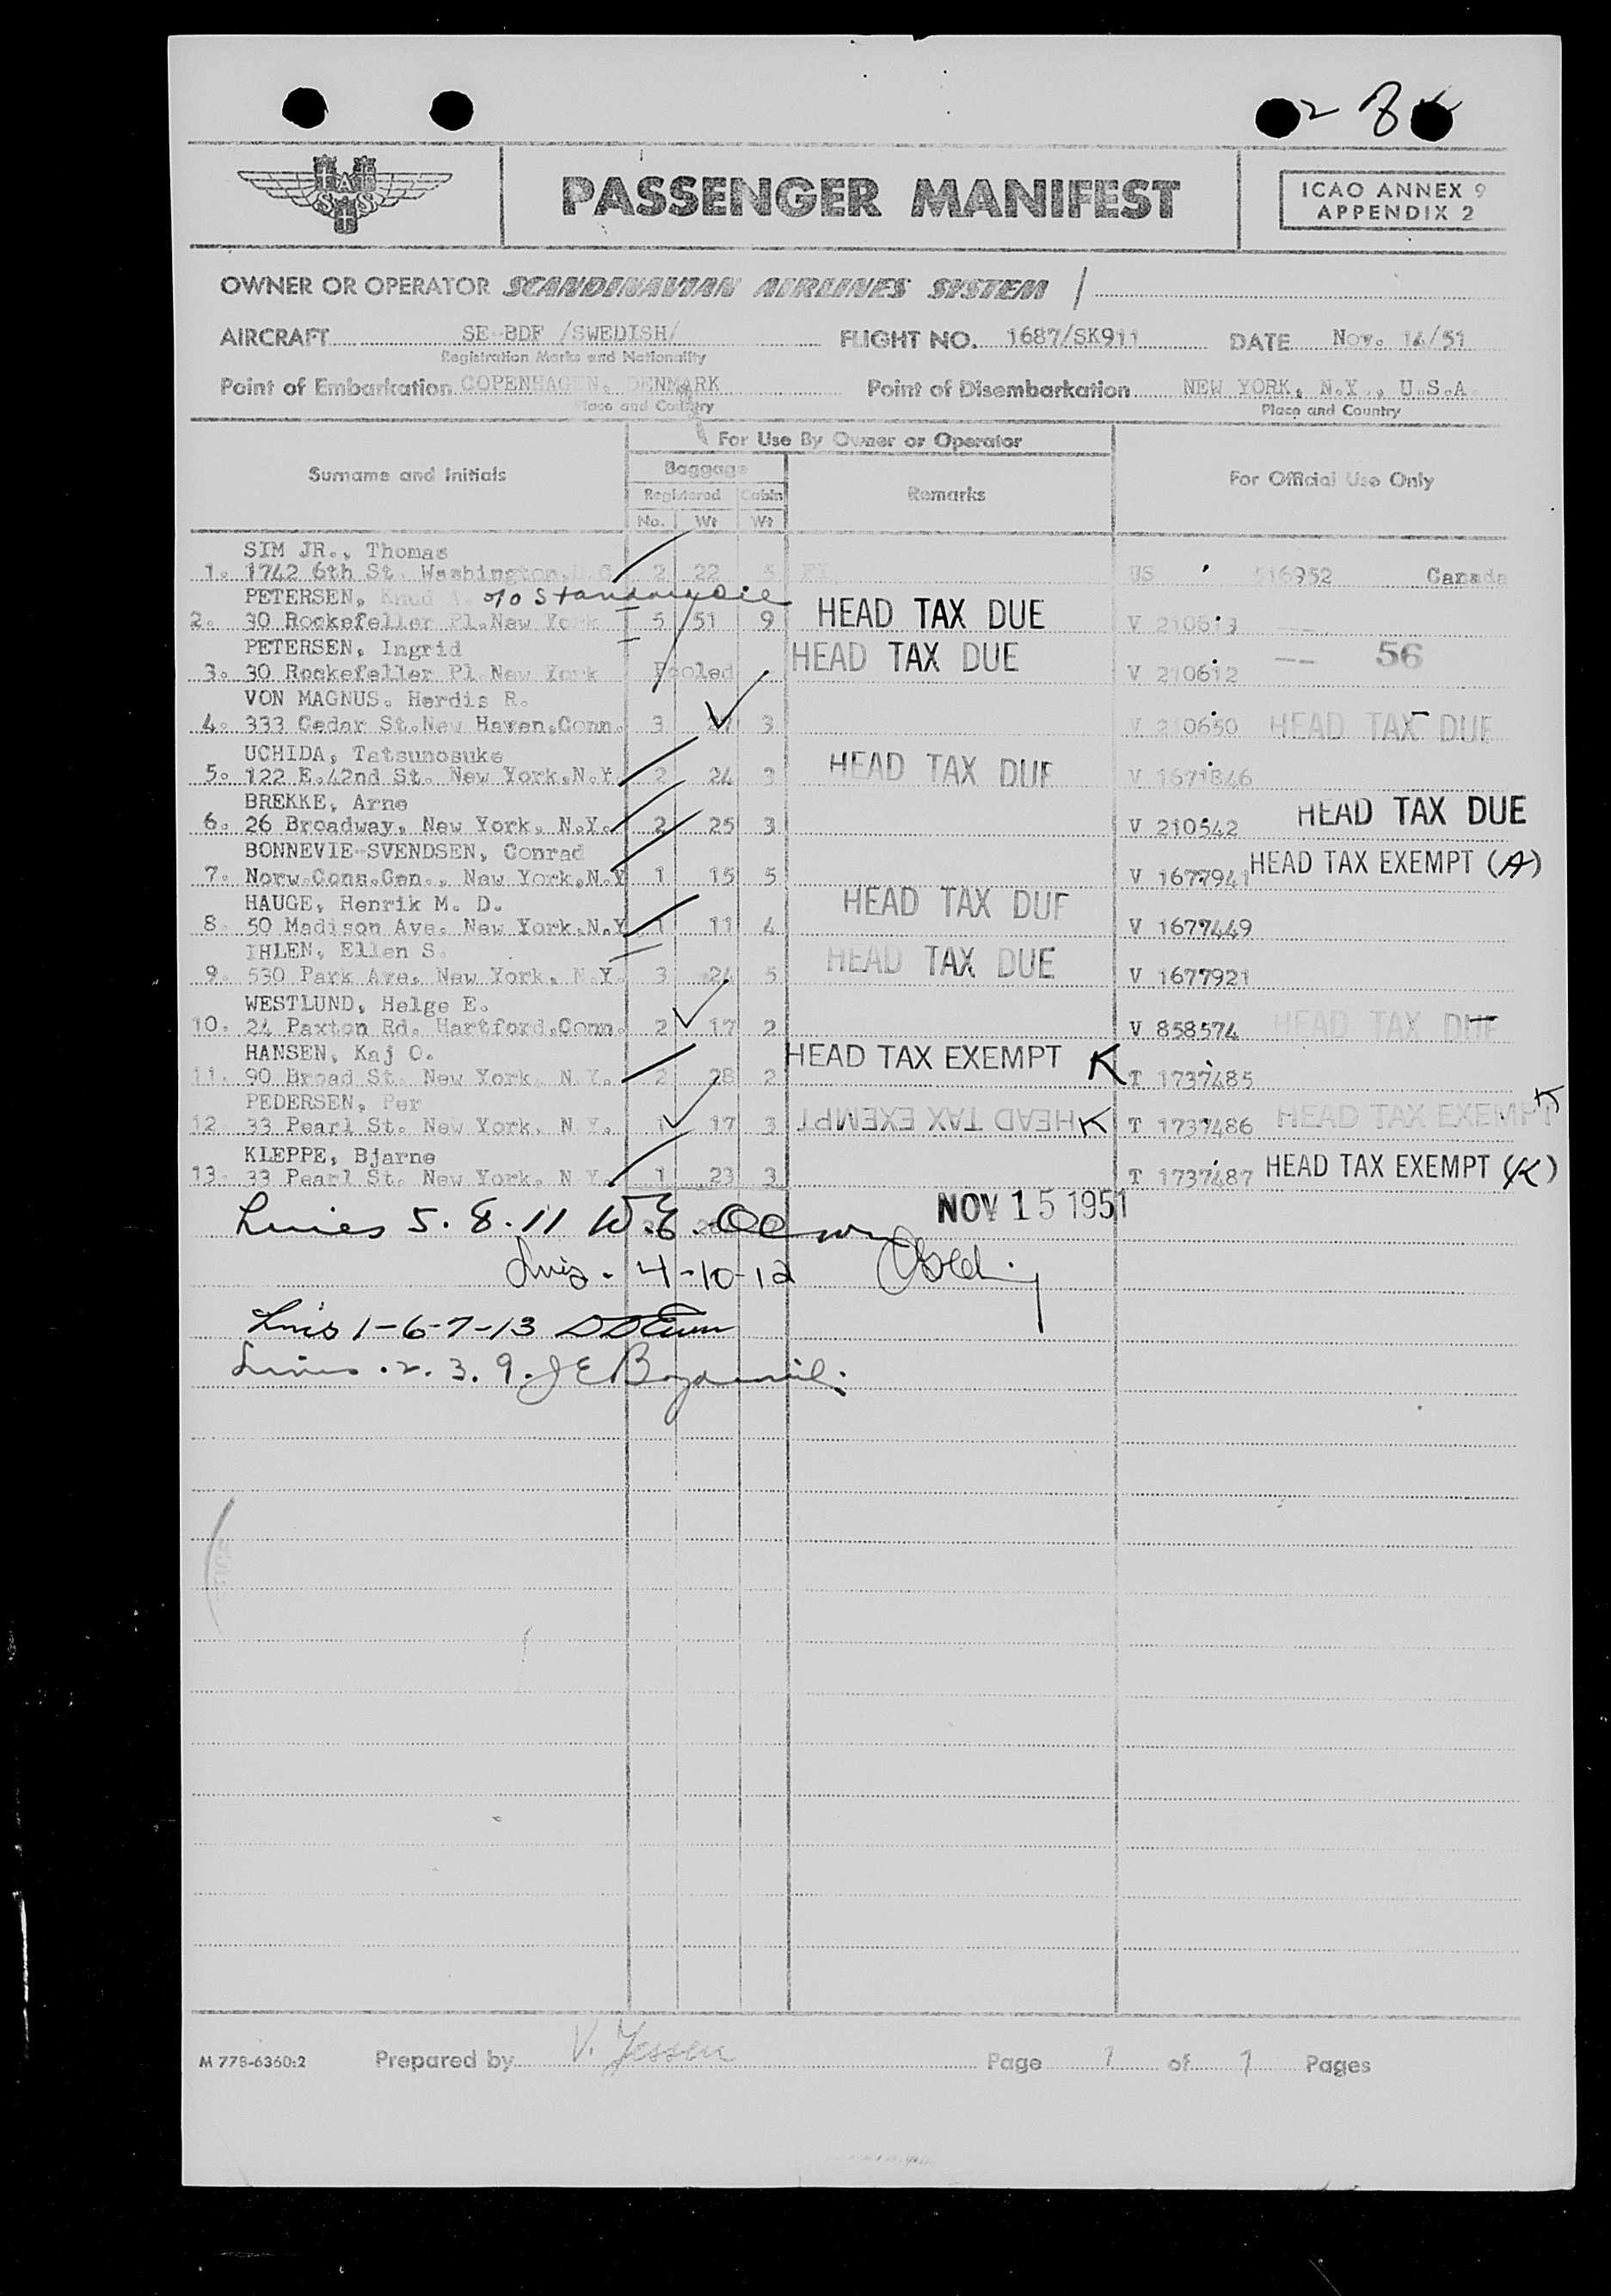 2 8
SAS
PASSENGER MANIFEST
ICAO ANNEX 9
APPENDIX 2
OWNER OR OPERATOR SCANDINAVIAN AIRLINES SYSTEM /
AIRCRAFT SE-BDF /SWEDISH/ FLIGHT NO. 1687/SK911 DATE Nov. 14/51
Registration Marks and Nationality
Point of Embarkation COPENHAGEN, DENMARK Point of Disembarkation NEW YORK, N.Y., U.S.A.
Place and Country Place and Country
Surname and Initials For Use By Owner or Operator For Official Use Only
Baggage Remarks
Registered Cabin
No. Wt Wt
SIM JR., Thomas
1. 1742 6th St. Washington.D.C 2 22 5 US 516952 Canada
PETERSEN, Knud A. c/o Standard Oil
2. 30 Rockefeller Pl.New York 5 51 9 HEAD TAX DUE V 210613
PETERSEN, Ingrid
3. 30 Rockefeller Pl.New York Pooled HEAD TAX DUE V 210612 56
VON MAGNUS. Herdis R.
4. 333 Cedar St.New Haven.Conn. 3 27 3 V 210650 HEAD TAX DUE
UCHIDA, Tatsunosuke
5. 122 E.42nd St. New York.N.Y. 2 24 3 HEAD TAX DUE V 1671846
BREKKE, Arne
6. 26 Broadway, New York. N.Y. 2 25 3 V 210542 HEAD TAX DUE
BONNEVIE-SVENDSEN, Conrad
7. Norw.Cons.Gen., New York.N.Y 1 15 5 V 1677941 HEAD TAX EXEMPT (A)
HAUGE, Henrik M. D.
8. 50 Madison Ave. New York.N.Y 1 11 4 HEAD TAX DUE V 1677449
IHLEN, Ellen S.
9. 530 Park Ave. New York. N.Y. 3 24 5 HEAD TAX DUE V 1677921
WESTLUND, Helge E.
10. 24 Paxton Rd. Hartford.Conn. 2 17 2 V 858574 HEAD TAX DUE
HANSEN, Kaj O.
11. 90 Broad St. New York. N.Y. 2 28 2 HEAD TAX EXEMPT K T 1737485
PEDERSEN, Per
12. 33 Pearl St. New York. N.Y. 1 17 3 HEAD TAX EXEMPT K T 1737486 HEAD TAX EXEMPT K
KLEPPE, Bjarne
13. 33 Pearl St. New York. N.Y. 1 23 3 T 1737487 HEAD TAX EXEMPT (K)
NOV 15 1951
Lines 5. 8. 11 W.E.
Lines . 4-10-12
Lines 1-6-7-13
Lines . 2. 3. 9. J E
M 778-6360:2 Prepared by V. Jessen Page 1 of 1 Pages